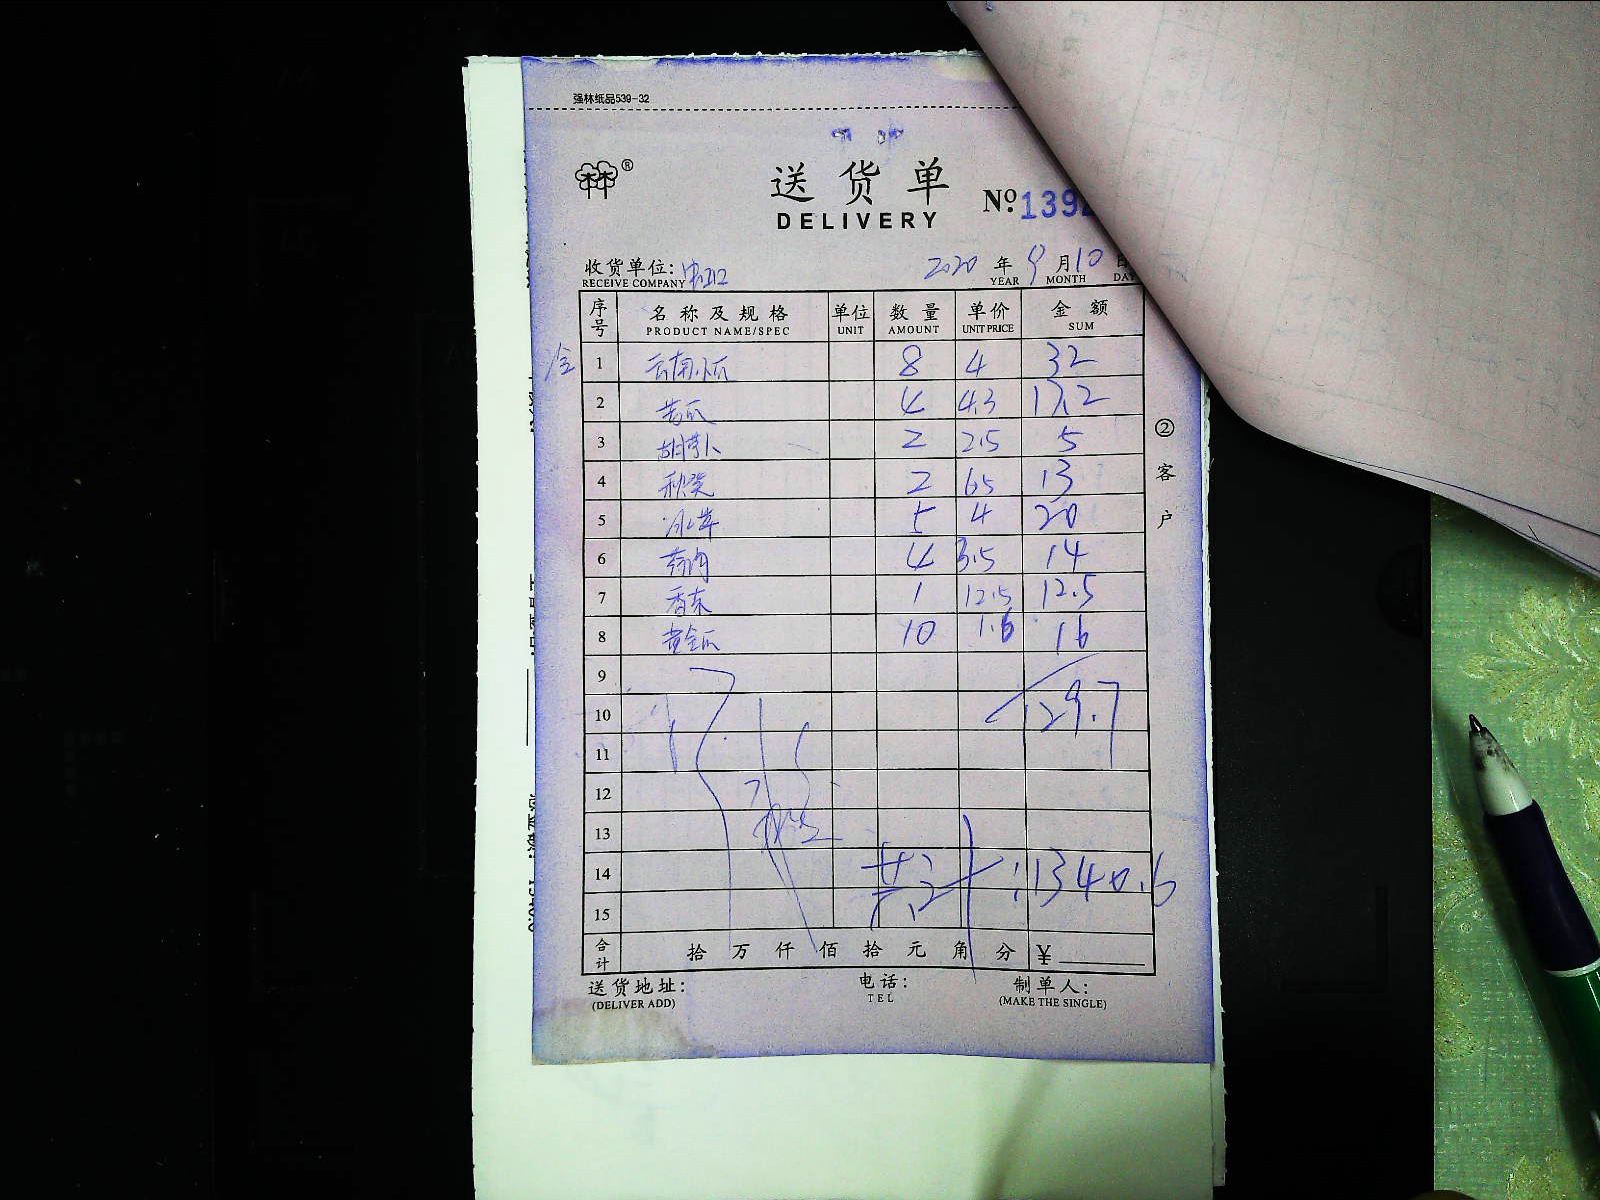 强林纸品539-32
送货单
DELIVERY
№:1392
收货单位:
RECEIVE COMPANY
2020 年 9 月 10
YEAR MONTH DA
序号 名称及规格 单位 数量 单价 金额
PRODUCT NAME/SPEC UNIT AMOUNT UNIT PRICE SUM
1 云南小瓜 8 4 32
2 苦瓜 4 4.3 17.2
3 胡萝卜 2 2.5 5
4 秋葵 2 6.5 13
5 冰草 5 4 20
6 4 3.5 14
7 1 12.5 12.5
8 黄金瓜 10 1.6 16
9
10 129.7
11
12
13
14 共计:1340.6
15
合计 拾万仟佰拾元角分 ¥
送货地址: 电话: 制单人:
(DELIVER ADD) TEL (MAKE THE SINGLE)
②客户